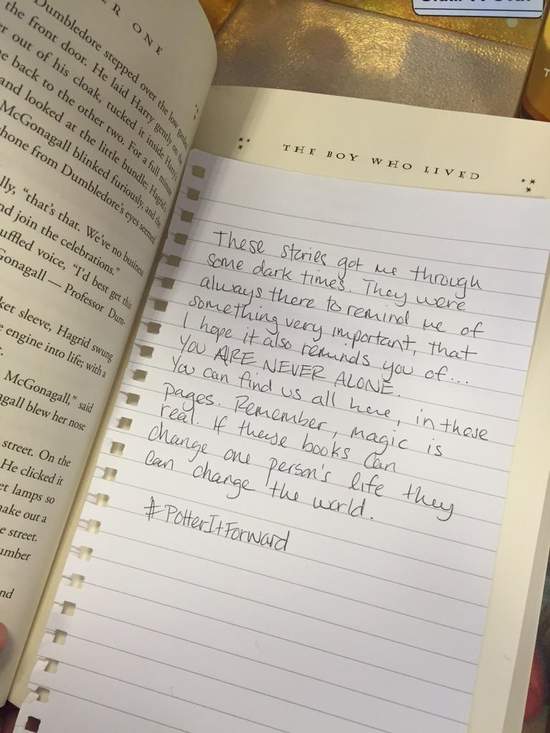 ER ONE
Dumbledore stepped over the low
the front door. He laid Harry gently on the
out of his cloak, tucked it inside Harry's
back to the other two. For a full minute
and looked at the little bundle; Hagrid's
McGonagall blinked furiously, and the
hone from Dumbledore's eyes seemed
lly, "that's that. We've no business
nd join the celebrations."
uffled voice, "I'd best get this
Gonagall — Professor Dum-
ket sleeve, Hagrid swung
e engine into life; with a
McGonagall," said
agall blew her nose
street. On the
He clicked it
et lamps so
make out a
e street.
umber
nd
THE BOY WHO LIVED
These stories got me through
some dark times. They were
always there to remind me of
something very important, that
I hope it also reminds you of...
YOU ARE NEVER ALONE.
You can find us all here, in these
pages. Remember, magic is
real. If these books can
change one person's life they
can change the world.
#PotterItForward